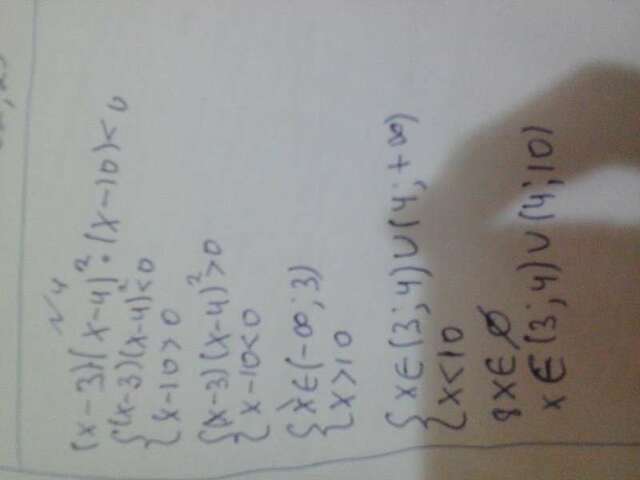 N4
(x-3)(x-4)²·(x-10)<0
{(x-3)(x-4)²<0
{x-10>0
{(x-3)(x-4)²>0
{x-10<0
{x∈(-∞;3)
{x>10
{x∈(3;4)∪(4;+∞)
{x<10
x∈∅
x∈(3;4)∪(4;10)